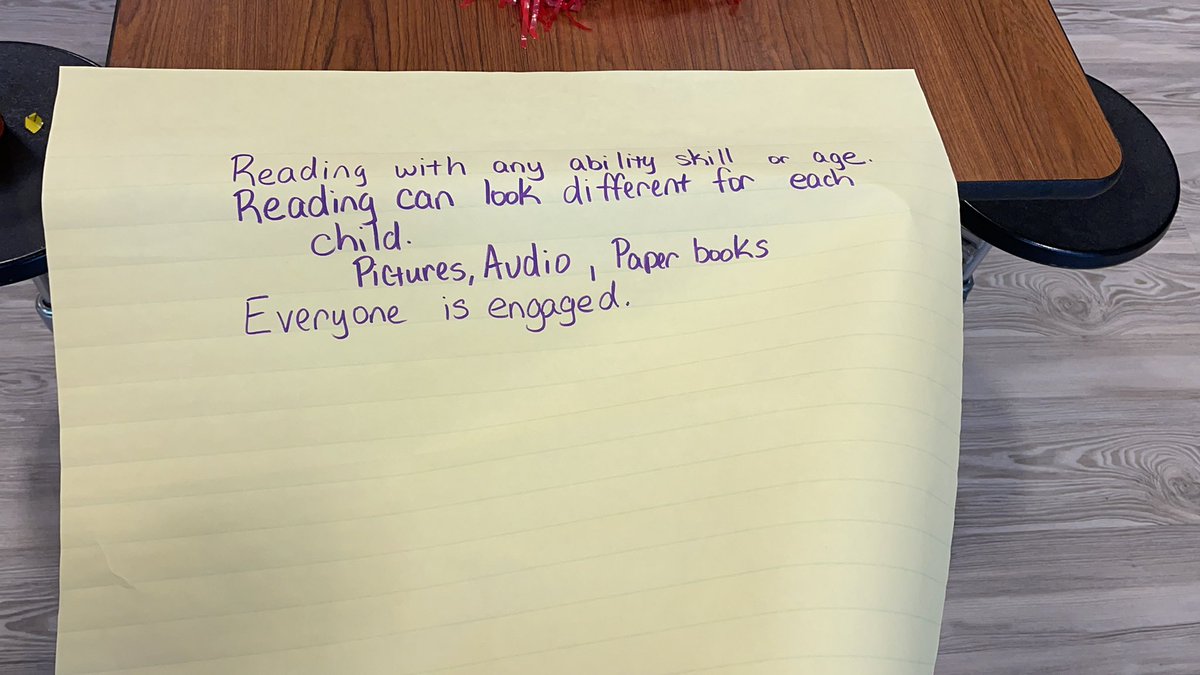 Reading with any ability skill or age.
Reading can look different for each
child.
Pictures, Audio, Paper books
Everyone is engaged.